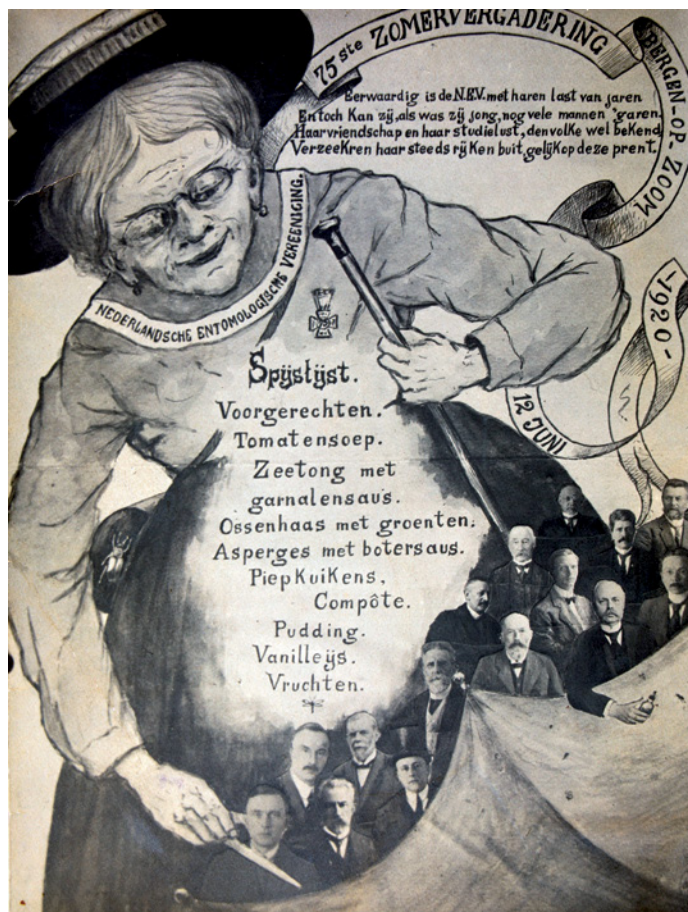 75ste ZOMERVERGADERING
BERGEN-OP-ZOOM
-1920-
12 JUNI
Eerwaardig is de N.E.V. met haren last van jaren
En toch kan zij, als was zij jong, nog vele mannen "garen.
Haar vriendschap en haar studielust, den volke wel bekend
Verzeekren haar steeds rijken buit, gelijk op deze prent.
NEDERLANDSCHE ENTOMOLOGISCHE VEREENIGING.
Spijslijst.
Voorgerechten.
Tomatensoep.
Zeetong met
garnalensaus.
Ossenhaas met groenten.
Asperges met botersaus.
Piepkuikens,
Compôte.
Pudding.
Vanilleijs.
Vruchten.